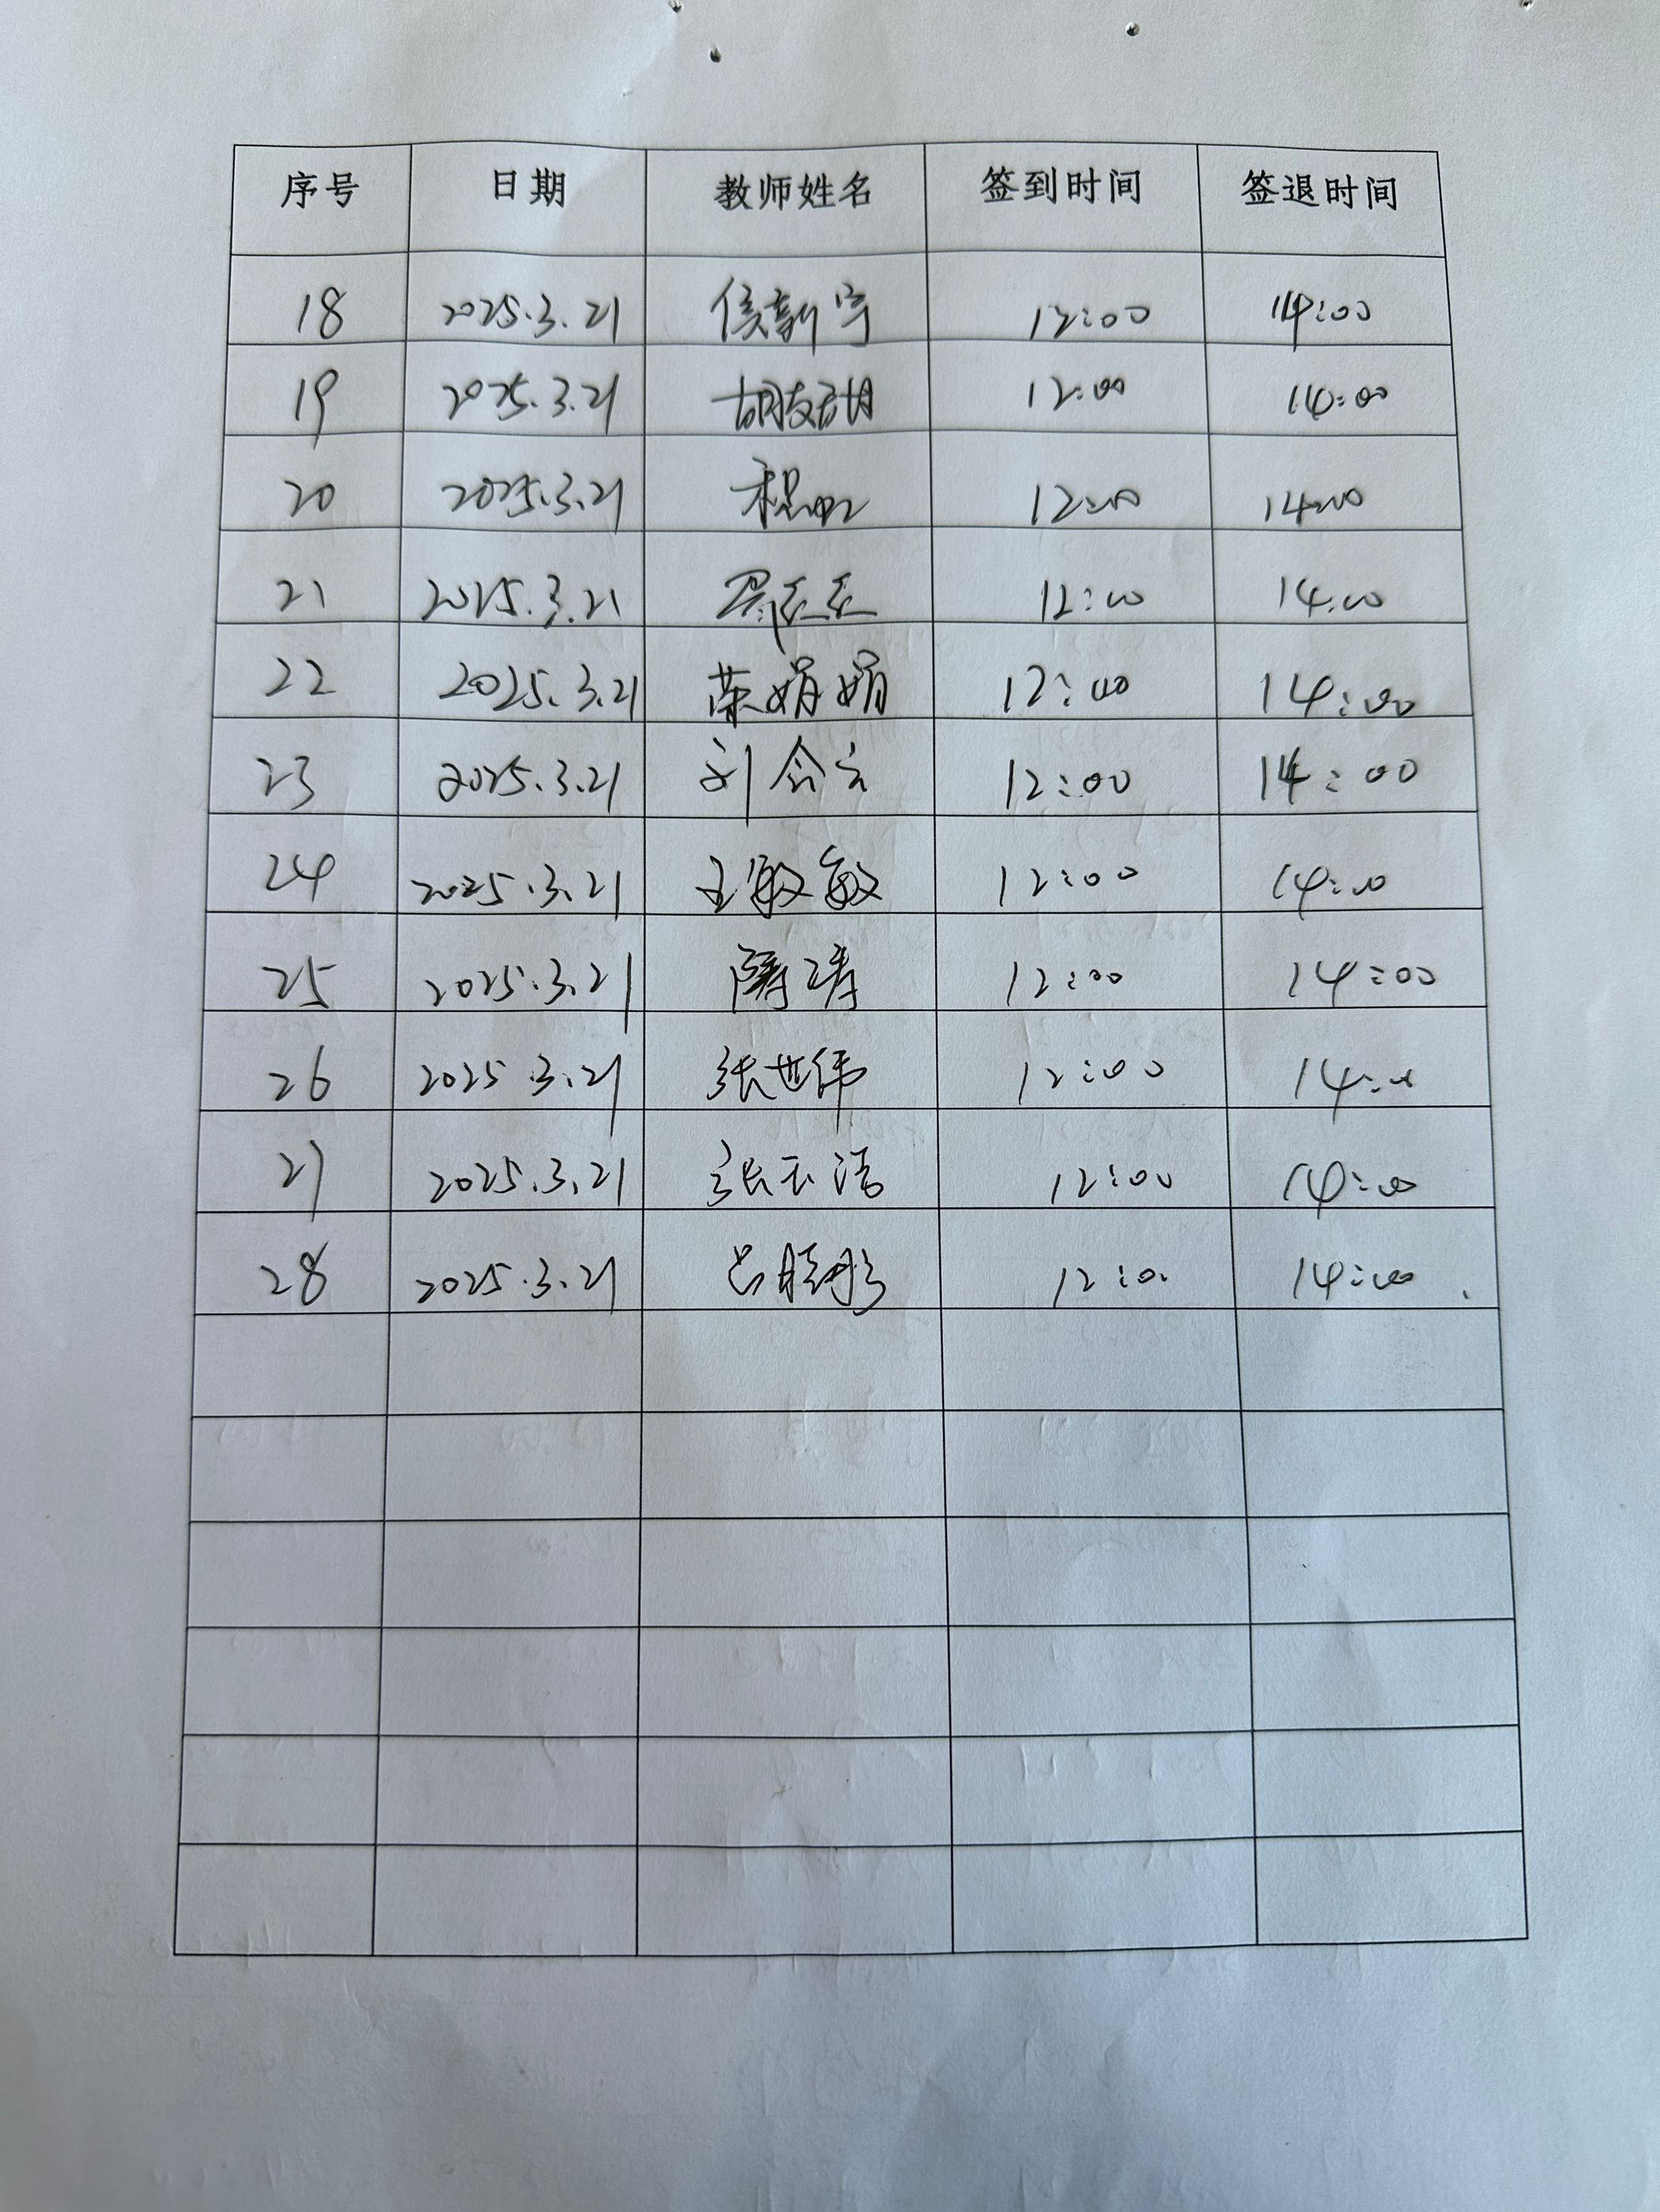 序号 日期 教师姓名 签到时间 签退时间
18 2025.3.21 侯新宇 12:00 14:00
19 2025.3.21 12:00 14:00
20 2025.3.21 12:00 14:00
21 2025.3.21 12:00 14:00
22 2025.3.21 荣娟娟 12:00 14:00
23 2025.3.21 刘会云 12:00 14:00
24 2025.3.21 王敏敏 12:00 14:00
25 2025.3.21 12:00 14:00
26 2025.3.21 张世伟 12:00 14:00
27 2025.3.21 张玉洁 12:00 14:00
28 2025.3.21 12:00 14:00